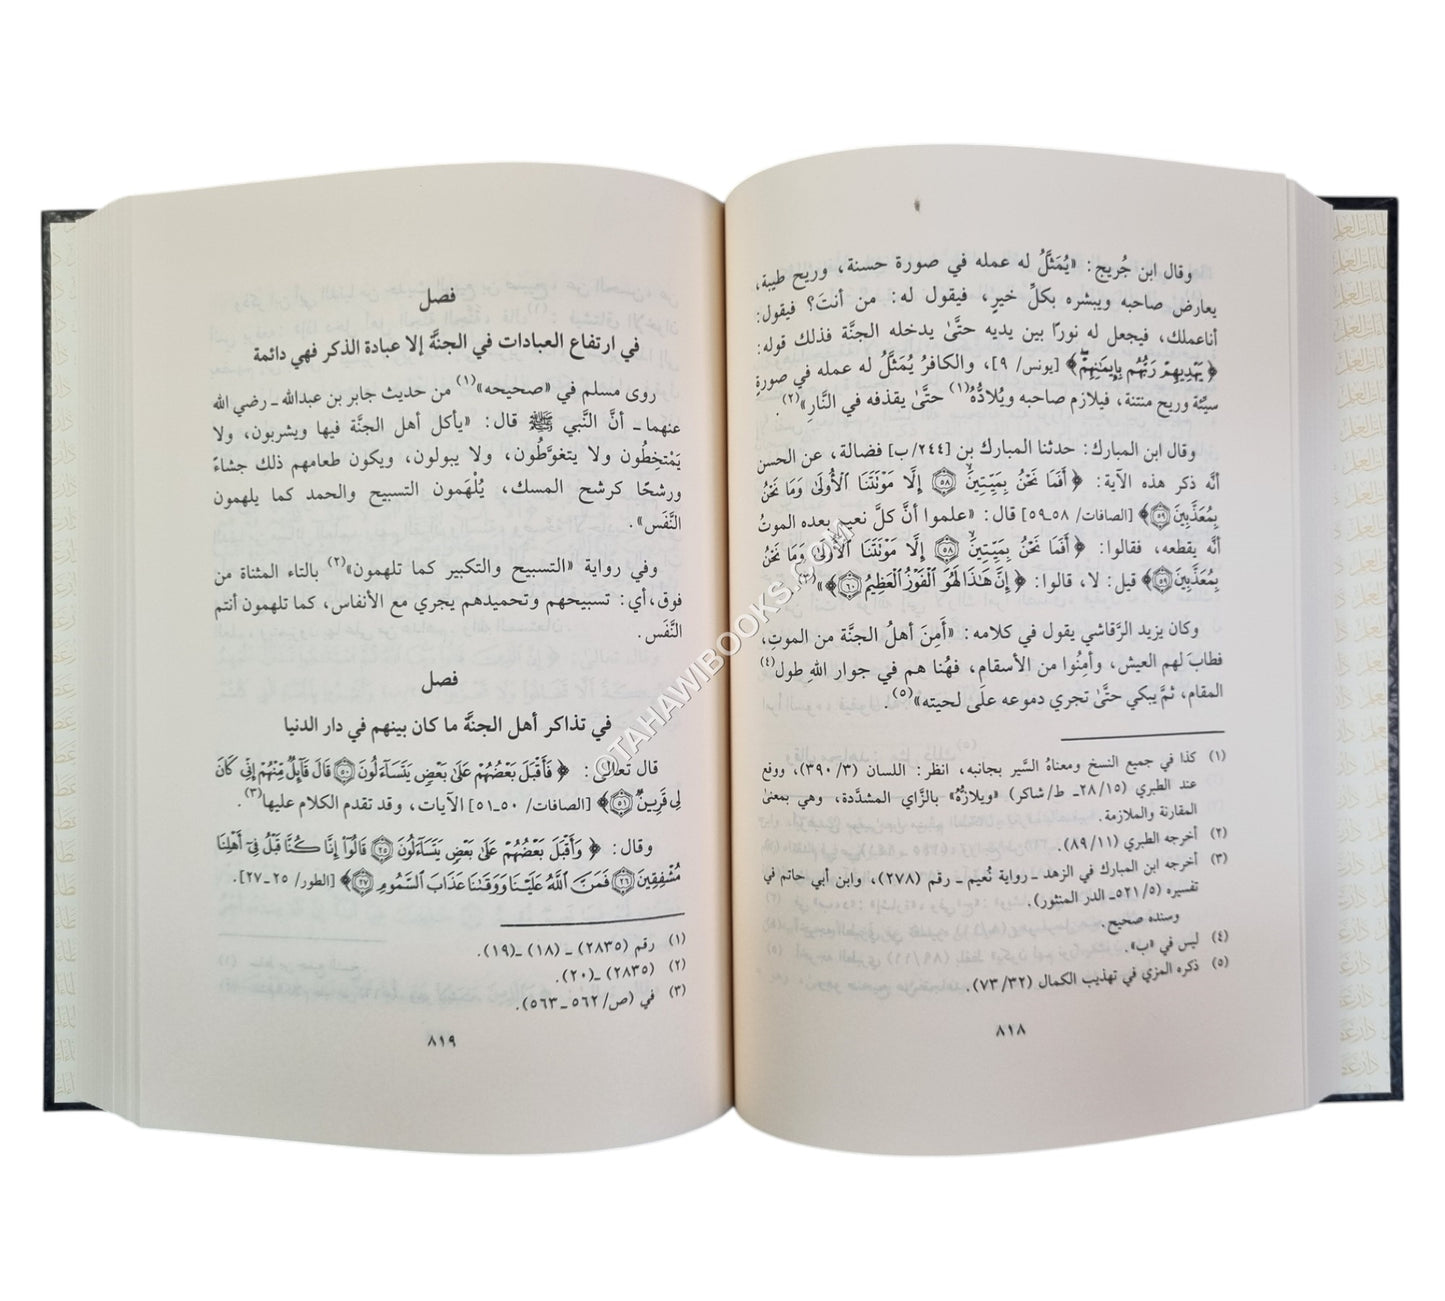 وقال ابن جُريج: «يُمَثَّلُ له عمله في صورة حسنة، وريح طيبة،
يعارض صاحبه ويبشره بكلِّ خيرٍ، فيقول له: من أنتَ؟ فيقول:
أناعملك، فيجعل له نورًا بين يديه حتَّىٰ يدخله الجنَّة فذلك قوله:
﴿ يَهْدِيهِمْ رَبُّهُم بِإِيمَٰنِهِمْ ﴾ [يونس/ ٩]، والكافرُ يُمَثَّلُ له عمله في صورةِ
سيِّئة وريح منتنة، فيلازم صاحبه ويُلادُّهُ(١) حتَّىٰ يقذفه في النَّارِ»(٢).
وقال ابن المبارك: حدثنا المبارك بن [٢٤٤/ب] فضالة، عن الحسن
أنَّه ذكر هذه الآية: ﴿ أَفَمَا نَحْنُ بِمَيِّتِينَ ٥٨ إِلَّا مَوْتَتَنَا ٱلْأُولَىٰ وَمَا نَحْنُ
بِمُعَذَّبِينَ ٥٩﴾ [الصافات/ ٥٨ـ٥٩] قال: «علموا أنَّ كلَّ نعيمٍ بعده الموتُ
أنَّه يقطعه، فقالوا: ﴿ أَفَمَا نَحْنُ بِمَيِّتِينَ ٥٨ إِلَّا مَوْتَتَنَا ٱلْأُولَىٰ وَمَا نَحْنُ
بِمُعَذَّبِينَ ٥٩﴾ قيل: لا، قالوا: ﴿ إِنَّ هَٰذَا لَهُوَ ٱلْفَوْزُ ٱلْعَظِيمُ ٦٠﴾»(٣).
وكان يزيد الرَّقاشي يقول في كلامه: «أَمِنَ أهلُ الجنَّة من الموتِ،
فطابَ لهم العيش، وأمِنُوا من الأسقام، فهُنا هم في جوار اللهِ طول(٤)
المقام، ثمَّ يبكي حتَّىٰ تجري دموعه علَى لحيته»(٥).
(١) كذا في جميع النسخ ومعناهُ السَّير بجانبه، انظر: اللسان (٣/ ٣٩٠)، ووقع
عند الطبري (١٥/ ٢٨ـ ط/ شاكر) «ويلازُّهُ» بالزَّاي المشدَّدة، وهي بمعنىٰ
المقارنة والملازمة.
(٢) أخرجه الطبري (١١/ ٨٩).
(٣) أخرجه ابن المبارك في الزهد ـ رواية نُعيم ـ رقم (٢٧٨)، وابن أبي حاتم في
تفسيره (٥/ ٥٢١ـ الدر المنثور).
وسنده صحيح.
(٤) ليس في «ب».
(٥) ذكره المزي في تهذيب الكمال (٣٢/ ٧٣).
٨١٨
فصل
في ارتفاع العبادات في الجنَّة إلا عبادة الذكر فهي دائمة
روى مسلم في «صحيحه»(١) من حديث جابر بن عبدالله ـ رضي الله
عنهما ـ أنَّ النَّبي ﷺ قال: «يأكل أهل الجنَّة فيها ويشربون، ولا
يَمْتخِطُون ولا يتغوَّطُون، ولا يبولون، ويكون طعامهم ذلك جشاءً
ورشحًا كرشح المسك، يُلْهَمون التسبيح والحمد كما يلهمون
النَّفَس».
وفي رواية «التسبيح والتكبير كما تلهمون»(٢) بالتاء المثناة من
فوق، أي: تسبيحهم وتحميدهم يجري مع الأنفاس، كما تلهمون أنتم
النَّفَس.
فصل
في تذاكر أهل الجنَّة ما كان بينهم في دار الدنيا
قال تعالَىٰ: ﴿ فَأَقْبَلَ بَعْضُهُمْ عَلَىٰ بَعْضٍ يَتَسَآءَلُونَ ٥٠ قَالَ قَآئِلٌ مِّنْهُمْ إِنِّي كَانَ
لِي قَرِينٌ ٥١﴾ [الصافات/ ٥٠ـ٥١] الآيات، وقد تقدم الكلام عليها(٣).
وقال: ﴿ وَأَقْبَلَ بَعْضُهُمْ عَلَىٰ بَعْضٍ يَتَسَآءَلُونَ ٢٥ قَالُوٓا۟ إِنَّا كُنَّا قَبْلُ فِىٓ أَهْلِنَا
مُشْفِقِينَ ٢٦ فَمَنَّ ٱللَّهُ عَلَيْنَا وَوَقَىٰنَا عَذَابَ ٱلسَّمُومِ ٢٧﴾ [الطور/ ٢٥ ـ٢٧].
(١) رقم (٢٨٣٥) ـ (١٨) ـ(١٩).
(٢) (٢٨٣٥) ـ(٢٠).
(٣) في (ص/ ٥٦٢ ـ٥٦٣).
٨١٩
©TAHAWIBOOKS.COM